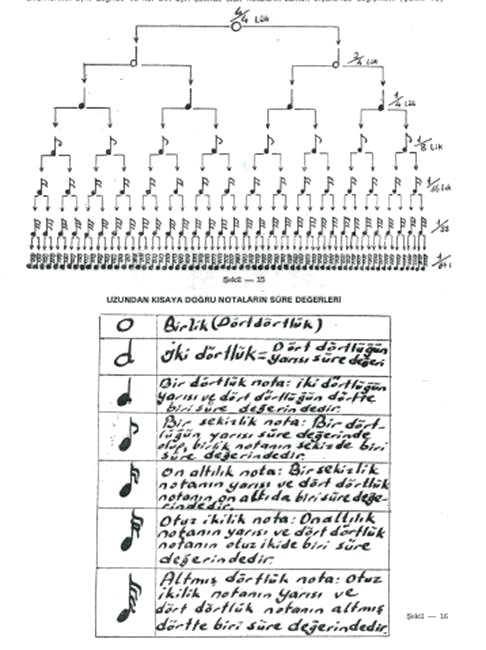 4/4 lük
2/4 lük
1/4 lük
1/8 lik
1/16 lık
1/32
1/64
Şekil — 15
UZUNDAN KISAYA DOĞRU NOTALARIN SÜRE DEĞERLERİ
Birlik (Dört dörtlük)
İki dörtlük = Dört dörtlüğün
yarısı süre değeri
Bir dörtlük nota: iki dörtlüğün
yarısı ve dört dörtlüğün dörtte
biri süre değerindedir.
Bir sekizlik nota: Bir dört-
lüğün yarısı süre değerinde
olup, birlik notanın sekizde biri
süre değerindedir.
On altılık nota: Bir sekizlik
notanın yarısı ve dört dörtlük
notanın on altıda biri süre değe-
rindedir.
Otuz ikilik nota: Onaltılık
notanın yarısı ve dört dörtlük
notanın otuz ikide biri süre
değerindedir.
Altmış dörtlük nota: Otuz
ikilik notanın yarısı ve
dört dörtlük notanın altmış
dörtte biri süre değerindedir.
Şekil — 16